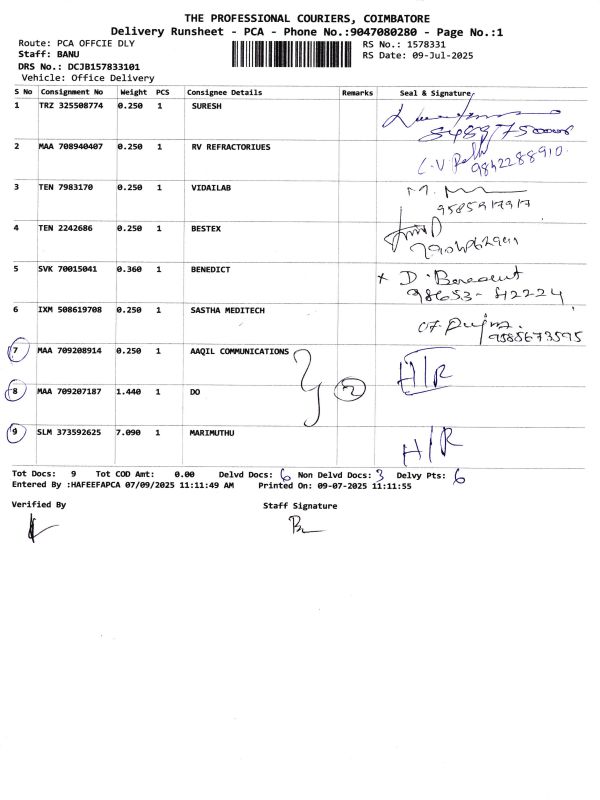 THE PROFESSIONAL COURIERS, COIMBATORE
Delivery Runsheet - PCA - Phone No.:9047080280 - Page No.:1
Route: PCA OFFCIE DLY RS No.: 1578331
Staff: BANU RS Date: 09-Jul-2025
DRS No.: DCJB157833101
Vehicle: Office Delivery
S No Consignment No Weight PCS Consignee Details Remarks Seal & Signature
1 TRZ 325508774 0.250 1 SURESH
2 MAA 708940407 0.250 1 RV REFRACTORIUES
9842288910
3 TEN 7983170 0.250 1 VIDAILAB
4 TEN 2242686 0.250 1 BESTEX
5 SVK 70015041 0.360 1 BENEDICT
98653-42224
6 IXM 508619708 0.250 1 SASTHA MEDITECH
9585673595
7 MAA 709208914 0.250 1 AAQIL COMMUNICATIONS H/R
8 MAA 709207187 1.440 1 DO 2
9 SLM 373592625 7.090 1 MARIMUTHU H/R
Tot Docs: 9 Tot COD Amt: 0.00 Delvd Docs: 6 Non Delvd Docs: 3 Delvy Pts: 6
Entered By :HAFEEFAPCA 07/09/2025 11:11:49 AM Printed On: 09-07-2025 11:11:55
Verified By Staff Signature